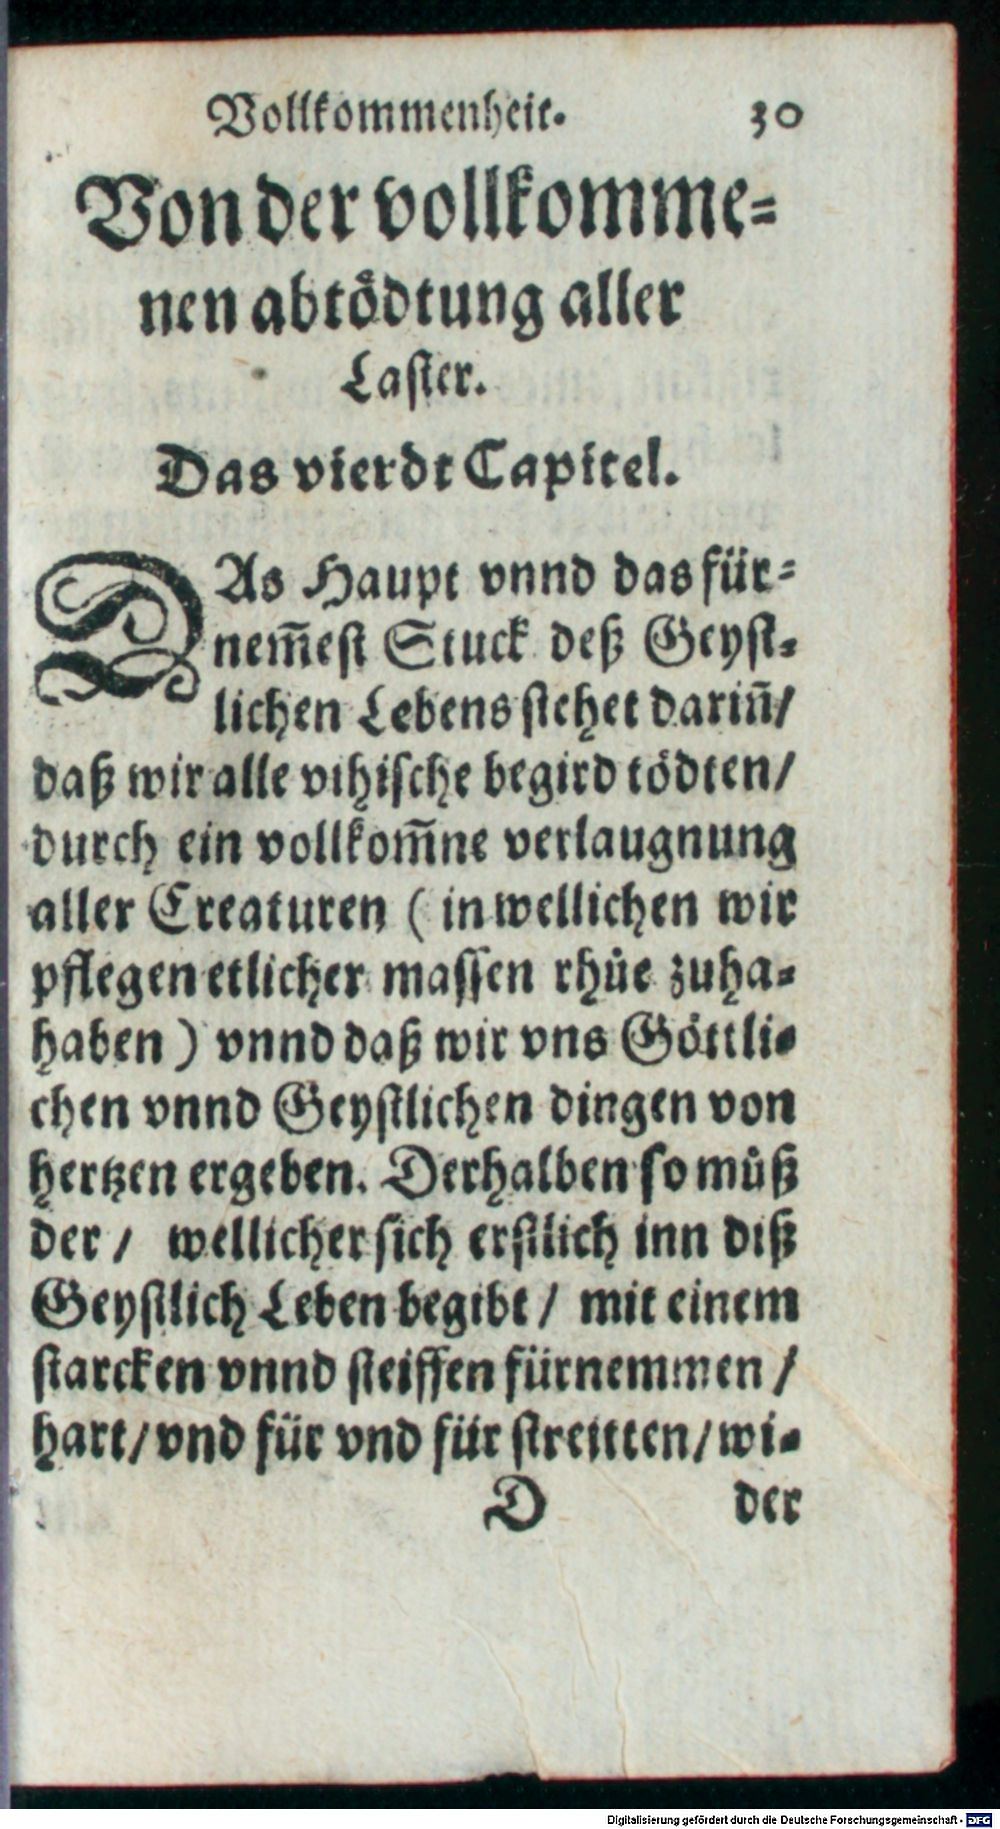 Vollkommenheit. 30
Von der vollkomme⸗
nen abtödtung aller
Laster.
Das vierdt Capitel.
DAs Haupt vnnd das für⸗
nem̅est Stuck deß Geyst⸗
lichen Lebens stehet darin̅/
daß wir alle vihische begird tödten/
durch ein vollkom̅ne verlaugnung
aller Creaturen ( in wellichen wir
pflegen etlicher massen rhüe zuha⸗
haben ) vnnd daß wir vns Göttli⸗
chen vnnd Geystlichen dingen von
hertzen ergeben. Derhalben so můß
der / wellicher sich erstlich inn diß
Geystlich Leben begibt / mit einem
starcken vnnd steiffen fürnemmen /
hart/ vnd für vnd für streitten/ wi⸗
D der
Digitalisierung gefördert durch die Deutsche Forschungsgemeinschaft - DFG